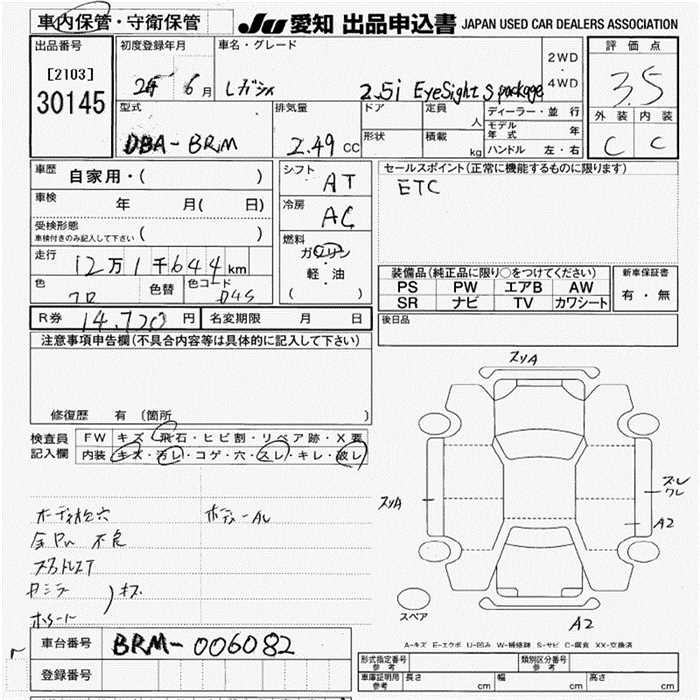 車内保管・守衛保管
JU 愛知 出品申込書 JAPAN USED CAR DEALERS ASSOCIATION
出品番号
[2103]
30145
初度登録年月
6 月
車名・グレード
レガシィ 2.5i EyeSight S package
2WD
4WD
評価点
3.5
外装 内装
C C
型式
DBA-BRM
排気量
2.49 CC
ドア
形状
定員
人
積載
kg
ディーラー・並行
モデル年式 年
ハンドル 左・右
車歴
自家用・( )
車検
年 月( 日)
受検形態
車検付きのみ記入して下さい ( )
走行
12万1千644 km
色
クロ
色替
色コード
D4S
シフト
AT
冷房
AC
燃料
ガソリン
軽・油
( )
セールスポイント(正常に機能するものに限ります)
ETC
装備品(純正品に限り○をつけてください)
PS PW エアB AW
SR ナビ TV カワシート
新車保証書
有・無
R券 14,720 円
名変期限 月 日
後日品
注意事項申告欄(不具合内容等は具体的に記入して下さい)
修復歴 有 (箇所 )
検査員
記入欄
FW キズ・飛石・ヒビ割・リペア跡・X要
内装 キズ・汚レ・コゲ・穴・スレ・キレ・破レ
ボディー AU
不良
キズ
スリA
スリA
スレ
ワレ
A2
A2
スペア
A-キズ E-エクボ U-凹み W-補修跡 S-サビ C-腐食 XX-交換済
車台番号
BRM-006082
登録番号
形式指定番号
参考
類別区分番号
参考
車庫証明用
参考
長さ cm
幅 cm
高さ cm